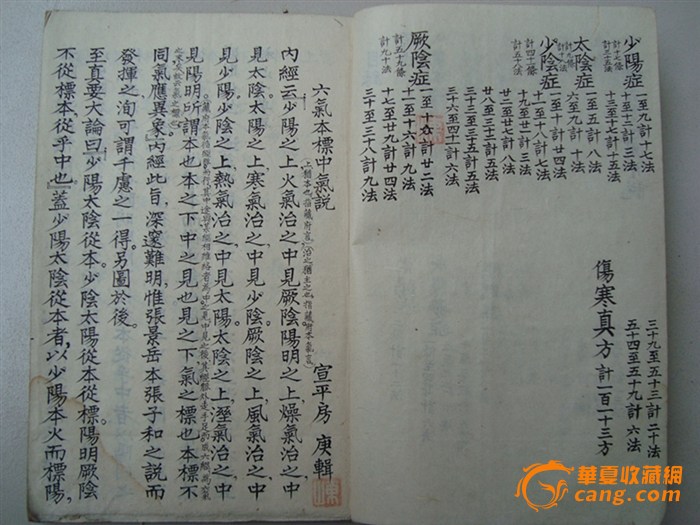 三十九至五十三計二十法
五十四至五十九計六法
傷寒真方計一百一十三方
少陽症
一至九計十七法
十至十二計三法
太陰症
一至五計八法
六至九計十法
少陰症
一至十計廿四法
十一至十八計八法
十九至廿一計三法
廿二至廿七計八法
廿八至三十二計五法
三十三至三十五計五法
三十六至四十一計六法
厥陰症
計五十九條
計九十法
計廿二法
十一至十六計九法
十七至廿九計廿四法
三十至三十八計九法
六氣本標中氣説
宣平房 庚輯
內經云少陽之上火氣治之中見厥陰陽明之上燥氣治之中
見太陰太陽之上寒氣治之中見少陰厥陰之上風氣治之中
見少陽少陰之上熱氣治之中見太陽太陰之上溼氣治之中
見陽明所謂本也本之下中之見也見之下氣之標也本標不
同氣應異象內經此旨深邃難明惟張景岳本張子和之説而
發揮之洵可謂千慮之一得另圖於後
至真要大論曰少陽太陰從本少陰太陽從本從標陽明厥陰
不從標本從乎中也蓋少陽太陰從本者以少陽本火而標陽
華夏收藏网
cang.com